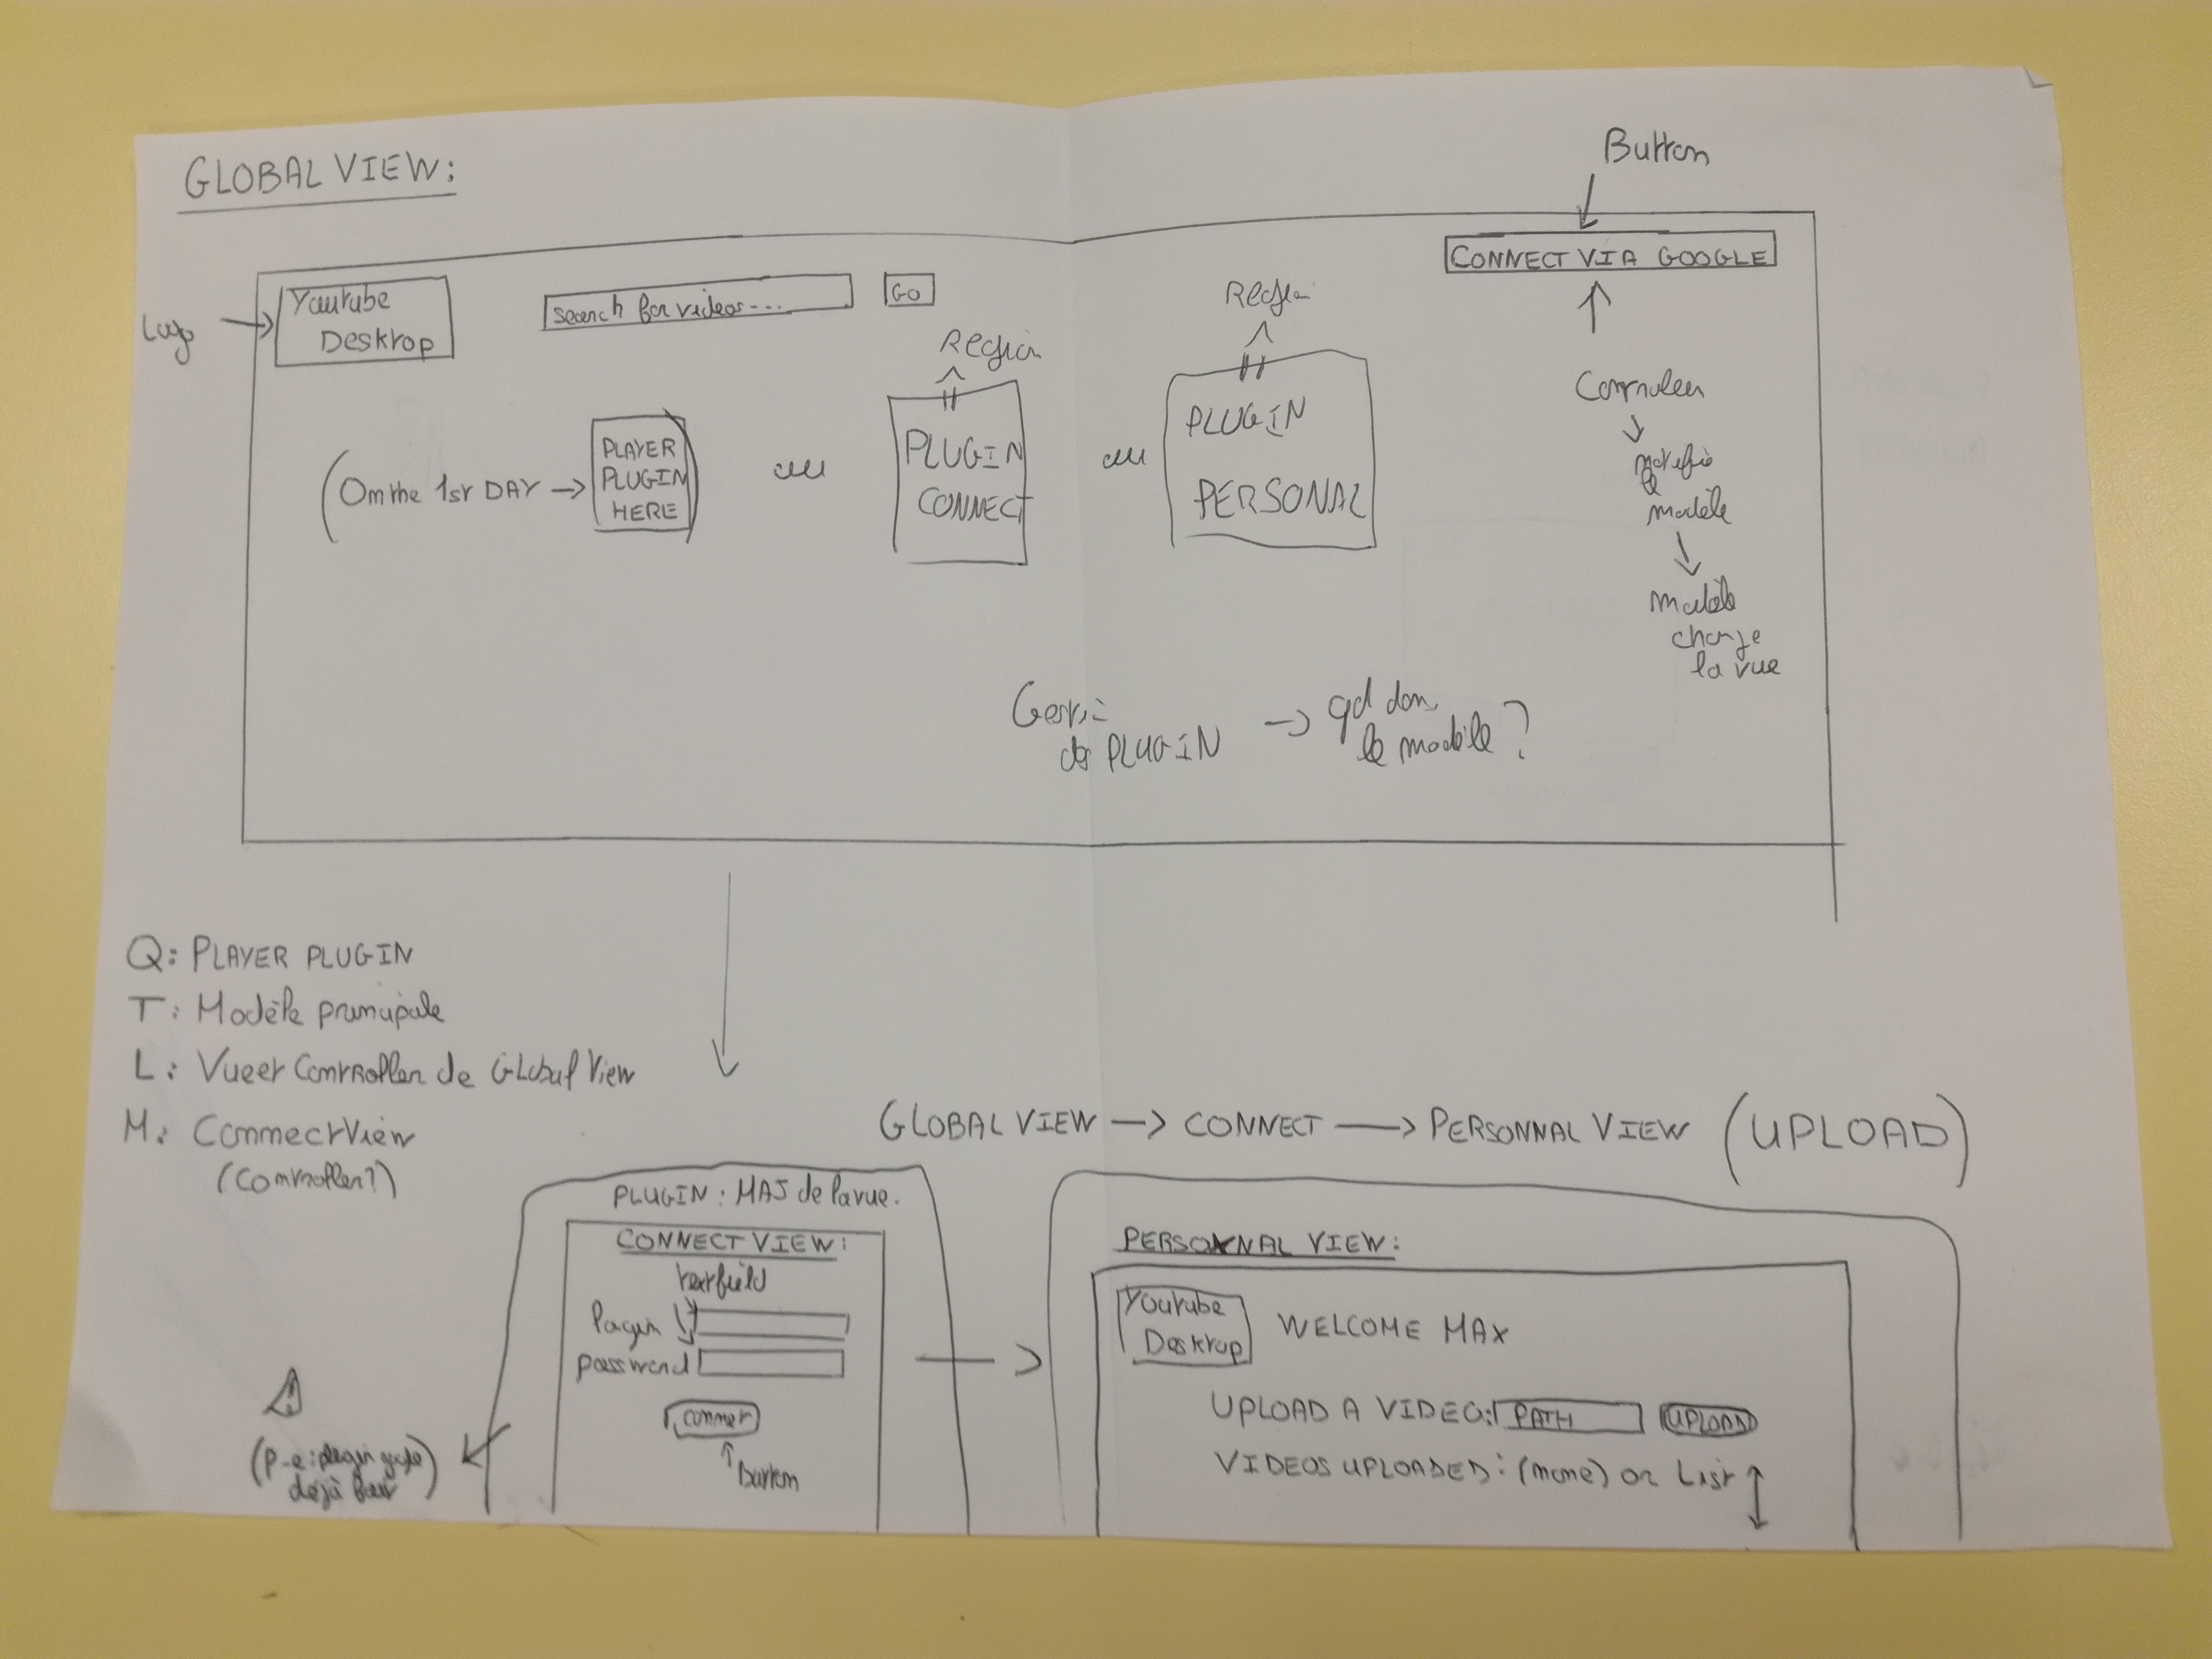 GLOBAL VIEW:
Button
CONNECT VIA GOOGLE
Logo
Youtube
Desktop
search for videos...
GO
Region
Region
(On the 1st DAY →
PLAYER
PLUGIN
HERE)
ou
PLUGIN
CONNECT
ou
PLUGIN
PERSONAL
Controller
modèle
modèle
change
la vue
PLUGIN →
le modèle ?
Q: PLAYER PLUGIN
T: Modèle principale
L: Vue et Controller de Global View
M: ConnectView
(Controller?)
GLOBAL VIEW → CONNECT → PERSONNAL VIEW (UPLOAD)
PLUGIN: MAJ de la vue.
CONNECT VIEW:
textfield
login
password
connect
Button
(p-e: plugin
déjà
PERSONNAL VIEW:
Youtube
Desktop
WELCOME MAX
UPLOAD A VIDEO: PATH UPLOAD
VIDEOS UPLOADED: (none) or List